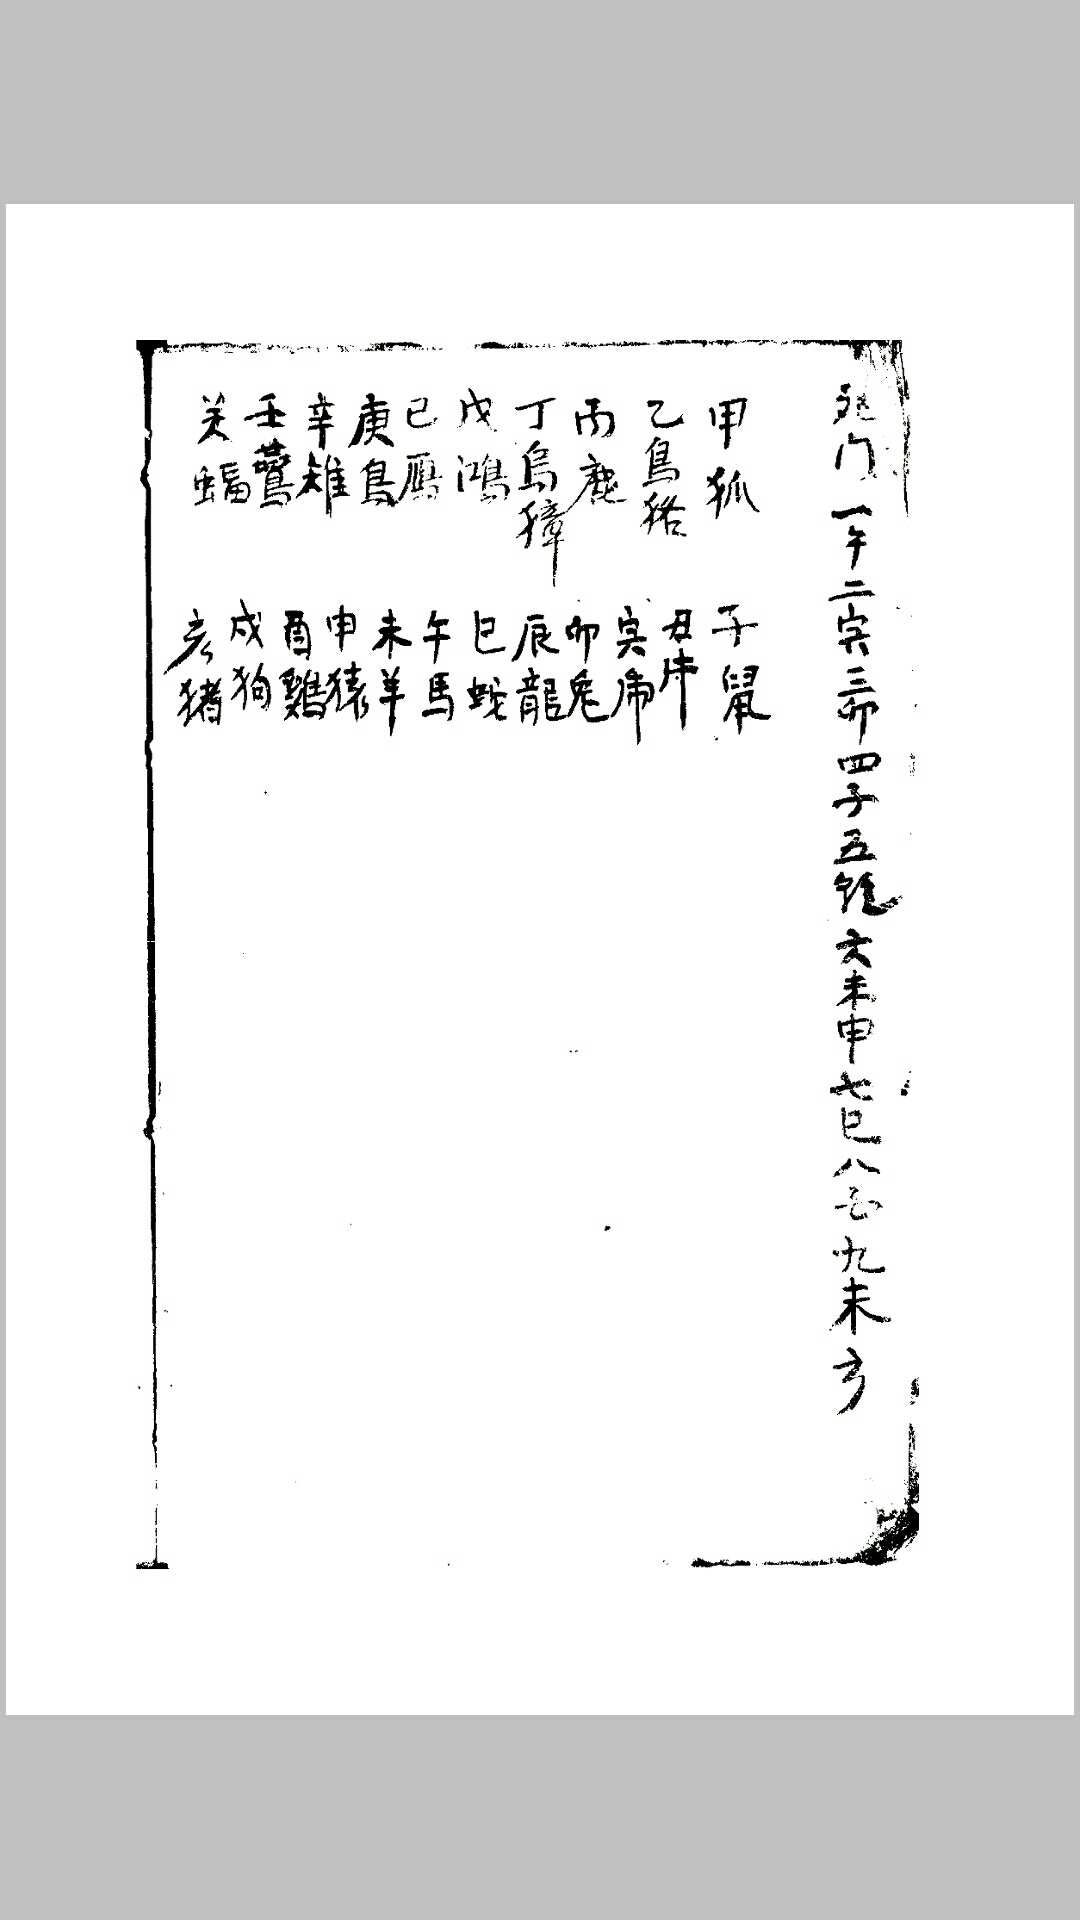 死门一午二寅三卯四子五雞六未申七巳八丑九未亥
甲狐
乙鳥狢
丙鹿
丁烏獐
戊鴻
己雁
庚烏
辛雉
壬鶯
关蝠
子鼠
丑牛
寅虎
卯兔
辰龍
巳蛇
午馬
未羊
申猿
酉鷄
戌狗
亥猪